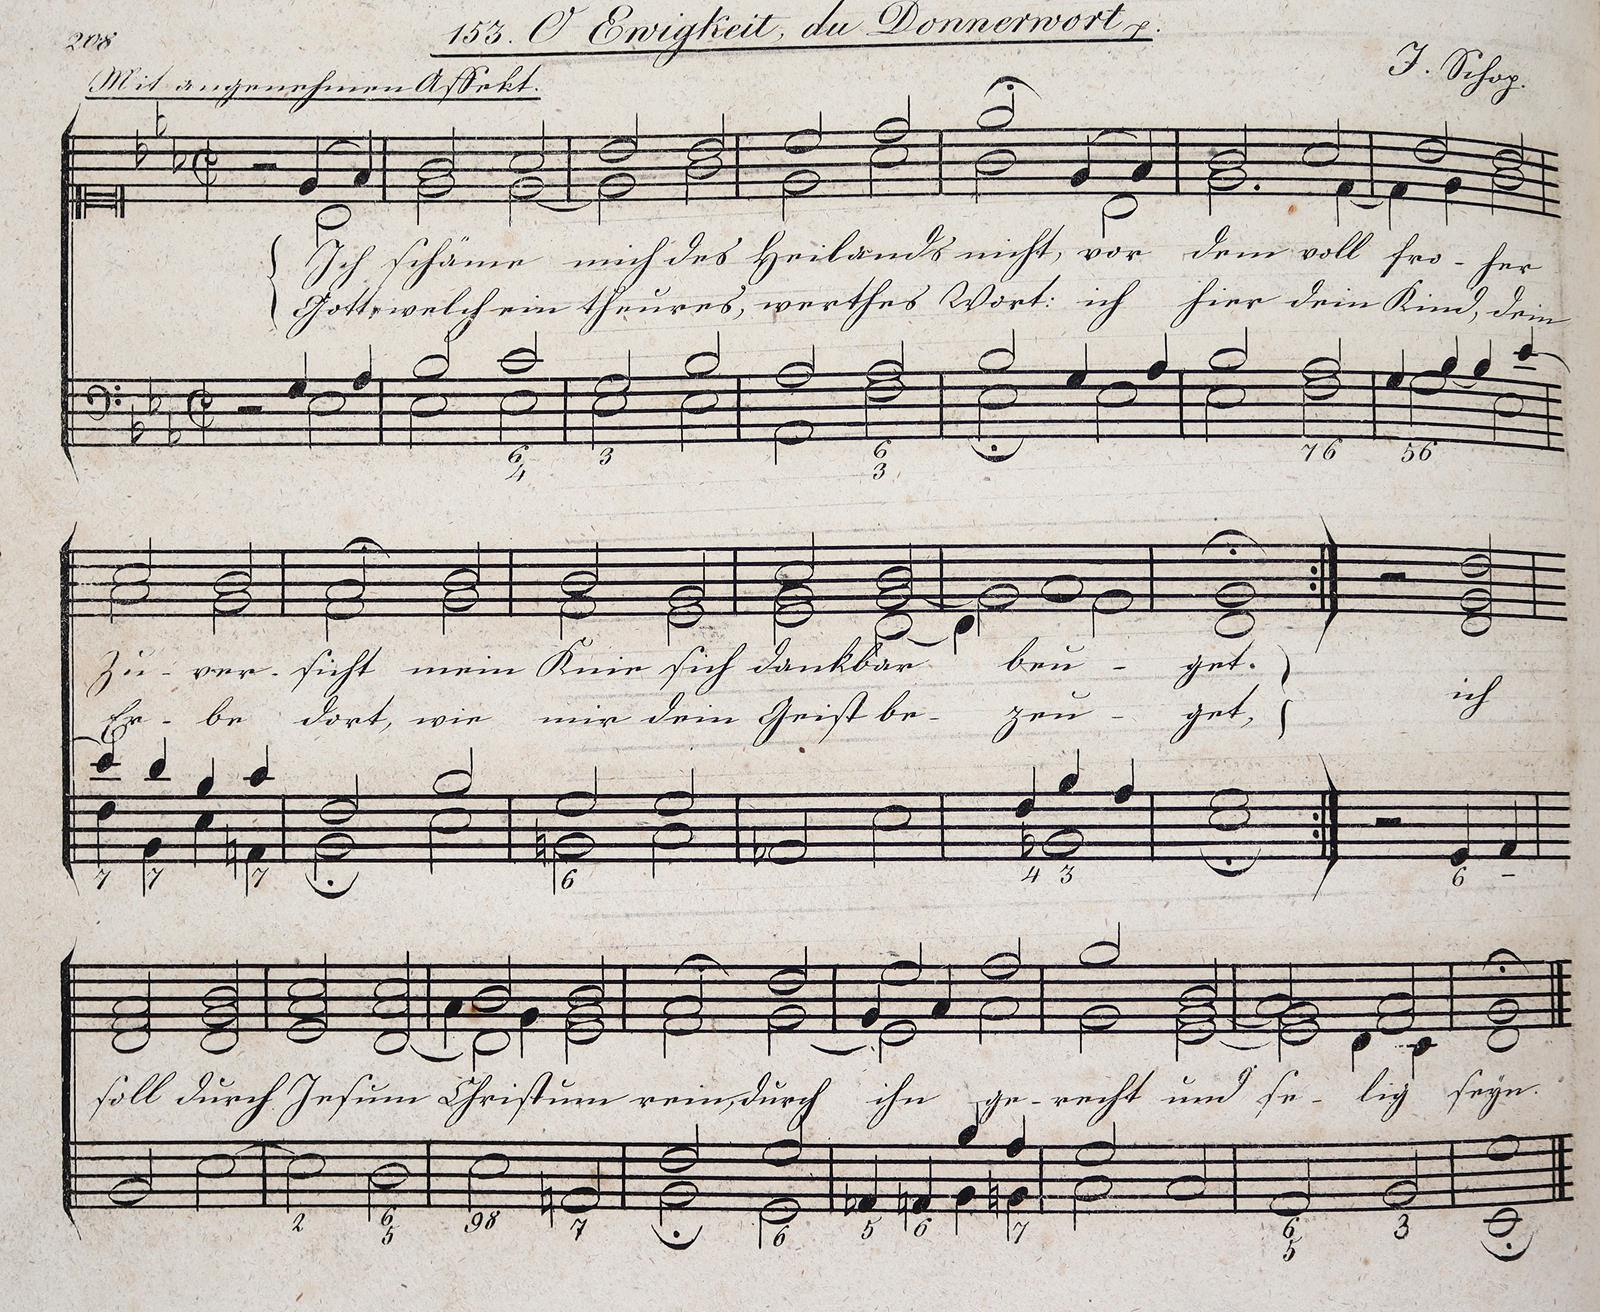 208
153. O Ewigkeit, du Donnerwort
Mit angenehmen Affekt.
J. Schop.
Ich schäme mich des Heilands nicht, vor dem voll fro-her
Gott, welch ein theures, werthes Wort: ich hier dein Kind, dein
6 3 6 7 6 5 6
4 3
Zu-ver-sicht mein Knie sich dankbar beu-get. ich
Er-be dort, wie mir dein Geist be-zeu-get,
7 7 7 6 4 3 6 –
soll durch Jesum Christum rein, durch ihn ge-recht und se-lig seyn.
2 6 9 8 7 6 5 6 7 6 3
5 5